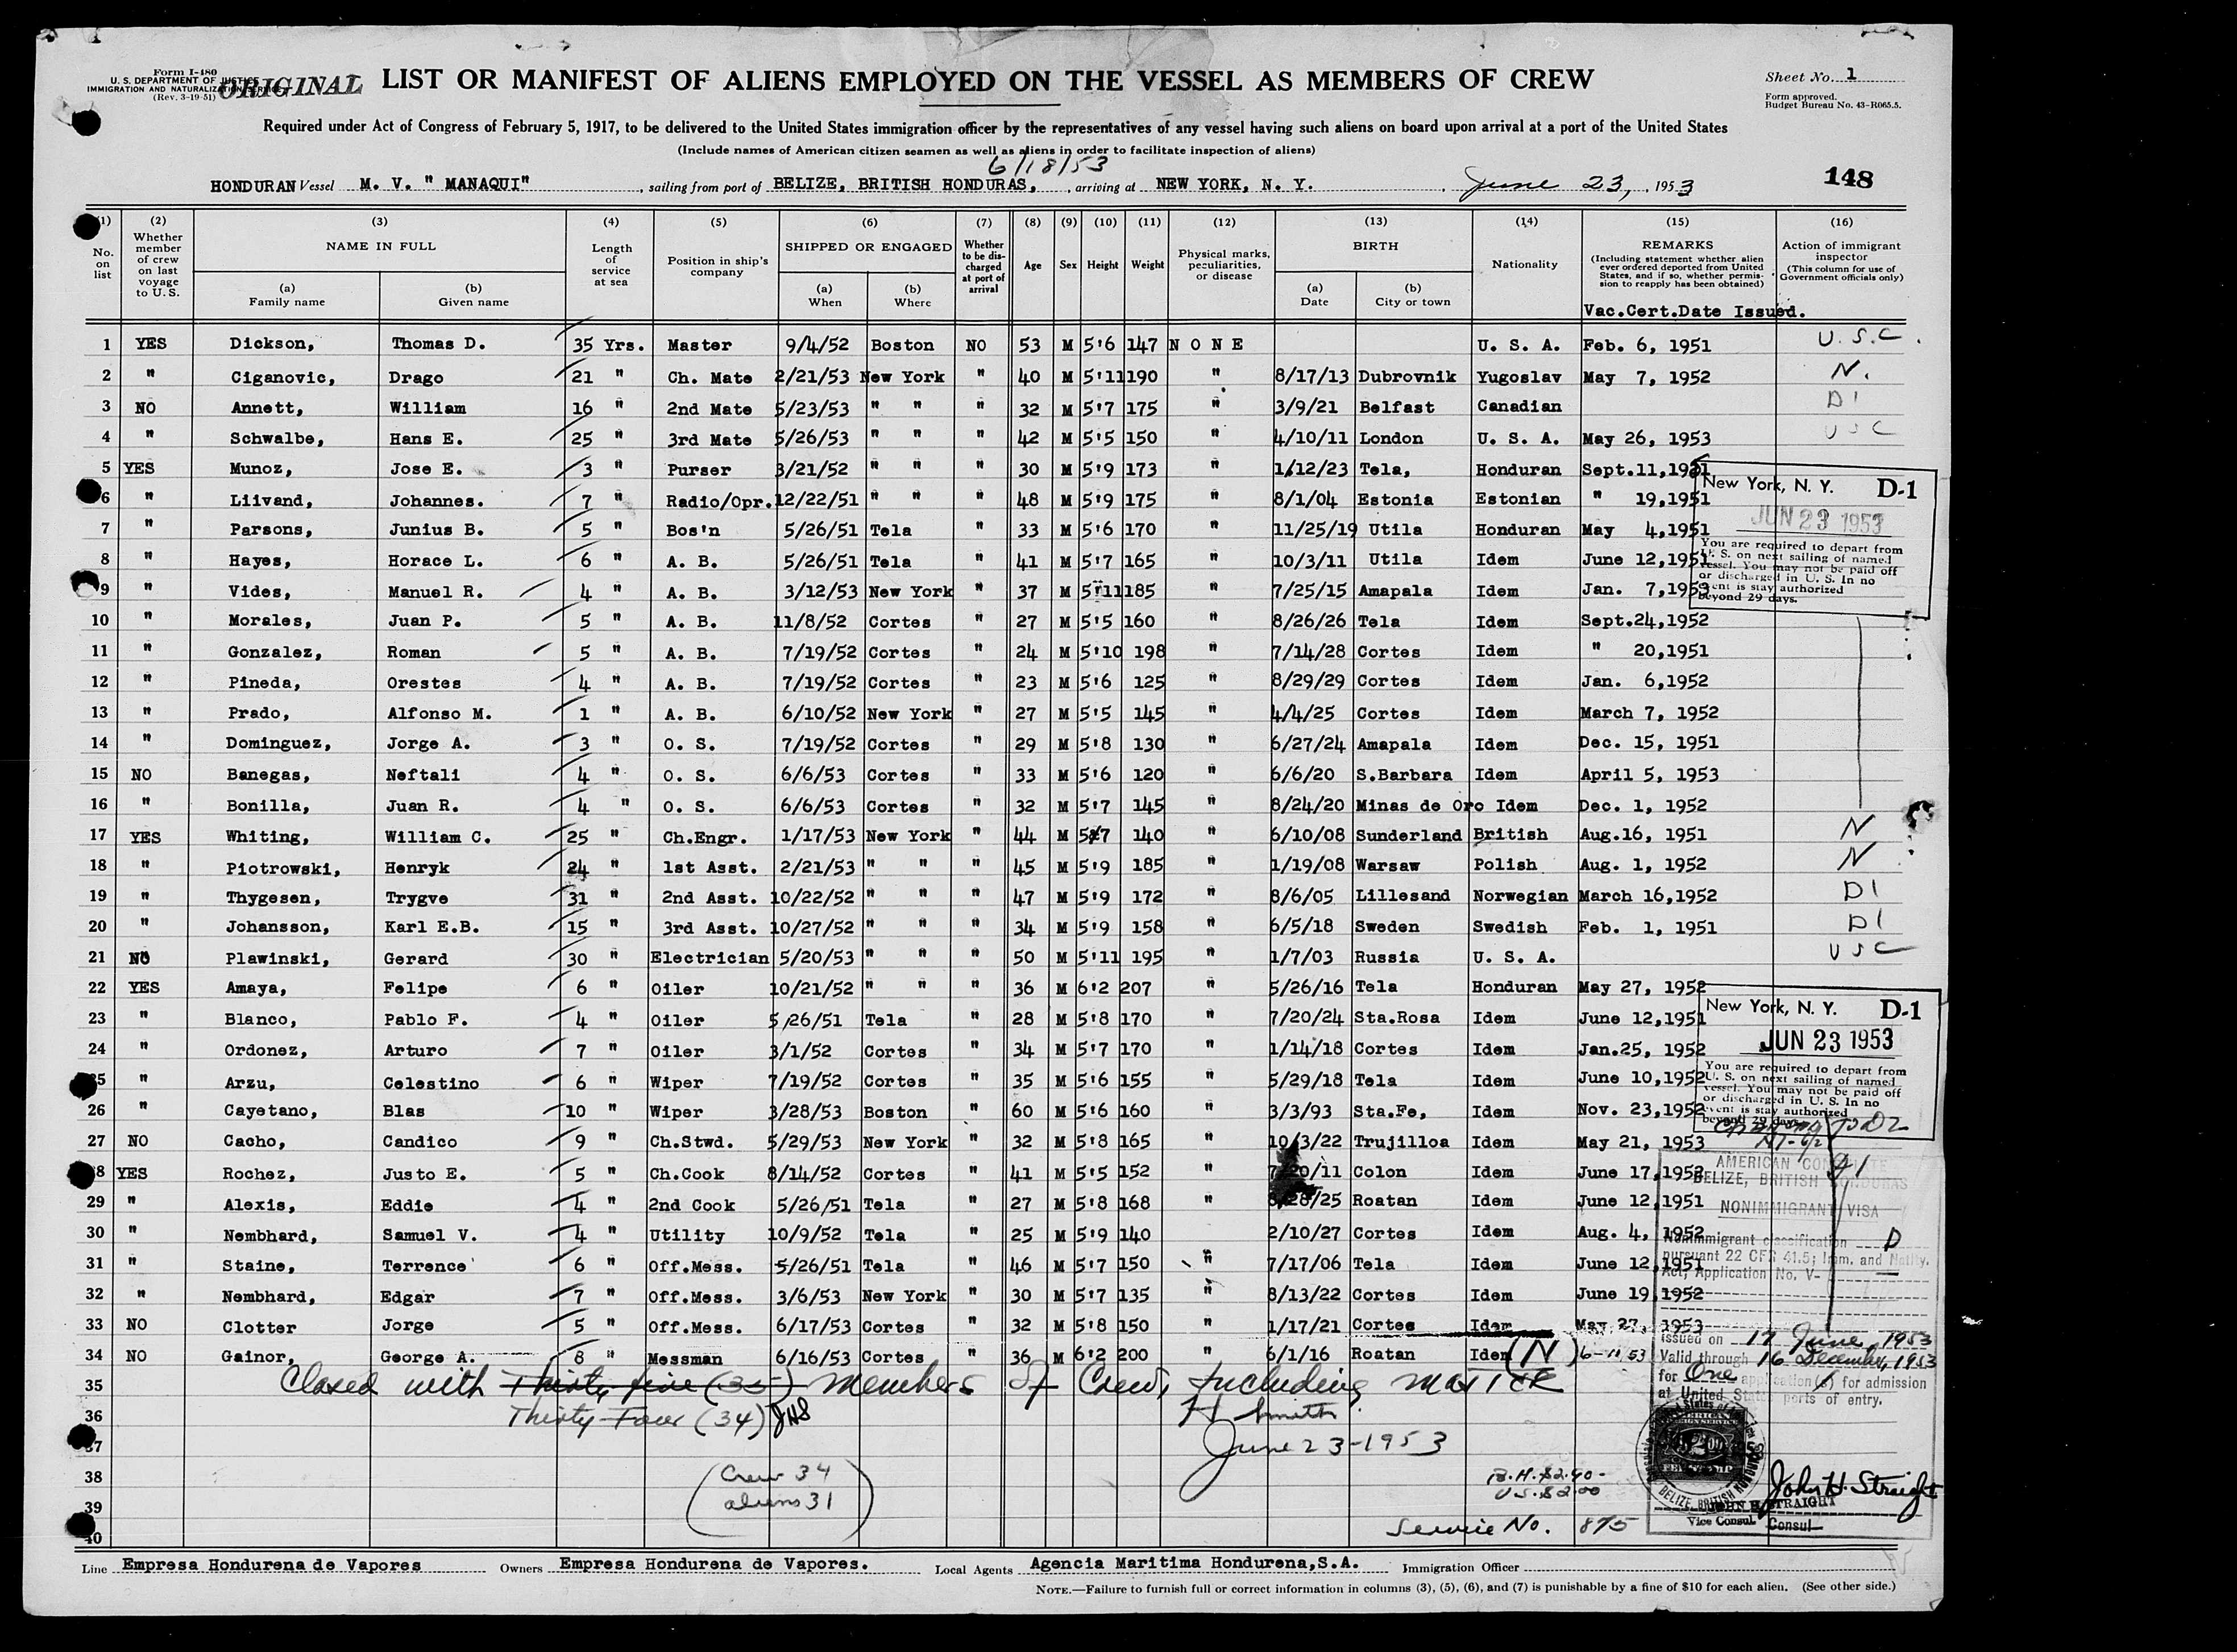 Form I-480
U. S. DEPARTMENT OF JUSTICE
IMMIGRATION AND NATURALIZATION SERVICE
(Rev. 3-19-51)
ORIGINAL
LIST OR MANIFEST OF ALIENS EMPLOYED ON THE VESSEL AS MEMBERS OF CREW
Sheet No. 1
Form approved.
Budget Bureau No. 43-R065.5.
Required under Act of Congress of February 5, 1917, to be delivered to the United States immigration officer by the representatives of any vessel having such aliens on board upon arrival at a port of the United States
(Include names of American citizen seamen as well as aliens in order to facilitate inspection of aliens)
6/18/53
148
HONDURAN Vessel M. V. " MANAQUI" , sailing from port of BELIZE, BRITISH HONDURAS, , arriving at NEW YORK, N. Y. , June 23, , 1953
(1) No. on list
(2) Whether member of crew on last voyage to U. S.
(3) NAME IN FULL (a) Family name (b) Given name
(4) Length of service at sea
(5) Position in ship's company
(6) SHIPPED OR ENGAGED (a) When (b) Where
(7) Whether to be discharged at port of arrival
(8) Age
(9) Sex
(10) Height
(11) Weight
(12) Physical marks, peculiarities, or disease
(13) BIRTH (a) Date (b) City or town
(14) Nationality
(15) REMARKS (Including statement whether alien ever ordered deported from United States, and if so, whether permission to reapply has been obtained)
Vac.Cert.Date Issued.
(16) Action of immigrant inspector (This column for use of Government officials only)
1 YES Dickson, Thomas D. 35 Yrs. Master 9/4/52 Boston NO 53 M 5'6 147 N O N E U. S. A. Feb. 6, 1951 U.S.C.
2 " Ciganovic, Drago 21 " Ch. Mate 2/21/53 New York " 40 M 5'11 190 " 8/17/13 Dubrovnik Yugoslav May 7, 1952 N.
3 NO Annett, William 16 " 2nd Mate 5/23/53 " " " 32 M 5'7 175 " 3/9/21 Belfast Canadian D1
4 " Schwalbe, Hans E. 25 " 3rd Mate 5/26/53 " " " 42 M 5'5 150 " 4/10/11 London U. S. A. May 26, 1953 USC
5 YES Munoz, Jose E. 3 " Purser 3/21/52 " " " 30 M 5'9 173 " 1/12/23 Tela, Honduran Sept.11,1951
6 " Liivand, Johannes. 7 " Radio/Opr. 12/22/51 " " " 48 M 5'9 175 " 8/1/04 Estonia Estonian " 19,1951
7 " Parsons, Junius B. 5 " Bos'n 5/26/51 Tela " 33 M 5'6 170 " 11/25/19 Utila Honduran May 4,1951
8 " Hayes, Horace L. 6 " A. B. 5/26/51 Tela " 41 M 5'7 165 " 10/3/11 Utila Idem June 12,1951
9 " Vides, Manuel R. 4 " A. B. 3/12/53 New York " 37 M 5'11 185 " 7/25/15 Amapala Idem Jan. 7,1953
New York, N. Y. D-1
JUN 23 1953
You are required to depart from
U. S. on next sailing of named
vessel. You may not be paid off
or discharged in U. S. In no
event is stay authorized
beyond 29 days.
10 " Morales, Juan P. 5 " A. B. 11/8/52 Cortes " 27 M 5'5 160 " 8/26/26 Tela Idem Sept.24,1952
11 " Gonzalez, Roman 5 " A. B. 7/19/52 Cortes " 24 M 5'10 198 " 7/14/28 Cortes Idem " 20,1951
12 " Pineda, Orestes 4 " A. B. 7/19/52 Cortes " 23 M 5'6 125 " 8/29/29 Cortes Idem Jan. 6,1952
13 " Prado, Alfonso M. 1 " A. B. 6/10/52 New York " 27 M 5'5 145 " 4/4/25 Cortes Idem March 7, 1952
14 " Dominguez, Jorge A. 3 " O. S. 7/19/52 Cortes " 29 M 5'8 130 " 6/27/24 Amapala Idem Dec. 15, 1951
15 NO Banegas, Neftali 4 " O. S. 6/6/53 Cortes " 33 M 5'6 120 " 6/6/20 S.Barbara Idem April 5, 1953
16 " Bonilla, Juan R. 4 " O. S. 6/6/53 Cortes " 32 M 5'7 145 " 8/24/20 Minas de Oro Idem Dec. 1, 1952
17 YES Whiting, William C. 25 " Ch.Engr. 1/17/53 New York " 44 M 5'7 140 " 6/10/08 Sunderland British Aug.16, 1951 N
18 " Piotrowski, Henryk 24 " 1st Asst. 2/21/53 " " " 45 M 5'9 185 " 1/19/08 Warsaw Polish Aug. 1, 1952 N
19 " Thygesen, Trygve 31 " 2nd Asst. 10/22/52 " " " 47 M 5'9 172 " 8/6/05 Lillesand Norwegian March 16,1952 D1
20 " Johansson, Karl E.B. 15 " 3rd Asst. 10/27/52 " " " 34 M 5'9 158 " 6/5/18 Sweden Swedish Feb. 1, 1951 D1
21 NO Plawinski, Gerard 30 " Electrician 5/20/53 " " " 50 M 5'11 195 " 1/7/03 Russia U. S. A. USC
22 YES Amaya, Felipe 6 " Oiler 10/21/52 " " " 36 M 6'2 207 " 5/26/16 Tela Honduran May 27, 1952
23 " Blanco, Pablo F. 4 " Oiler 5/26/51 Tela " 28 M 5'8 170 " 7/20/24 Sta.Rosa Idem June 12,1951
24 " Ordonez, Arturo 7 " Oiler 3/1/52 Cortes " 34 M 5'7 170 " 1/14/18 Cortes Idem Jan.25, 1952
25 " Arzu, Celestino 6 " Wiper 7/19/52 Cortes " 35 M 5'6 155 " 5/29/18 Tela Idem June 10,1952
26 " Cayetano, Blas 10 " Wiper 3/28/53 Boston " 60 M 5'6 160 " 3/3/93 Sta.Fe, Idem Nov. 23,1952
New York, N. Y. D-1
JUN 23 1953
You are required to depart from
U. S. on next sailing of named
vessel. You may not be paid off
or discharged in U. S. In no
event is stay authorized
beyond 29 days.
27 NO Cacho, Candico 9 " Ch.Stwd. 5/29/53 New York " 32 M 5'8 165 " 10/3/22 Trujilloa Idem May 21, 1953
28 YES Rochez, Justo E. 5 " Ch.Cook 8/14/52 Cortes " 41 M 5'5 152 " 7/20/11 Colon Idem June 17,1952
29 " Alexis, Eddie 4 " 2nd Cook 5/26/51 Tela " 27 M 5'8 168 " /28/25 Roatan Idem June 12,1951
30 " Nembhard, Samuel V. 4 " Utility 10/9/52 Tela " 25 M 5'9 140 2/10/27 Cortes Idem Aug. 4, 1952
31 " Staine, Terrence 6 " Off.Mess. 5/26/51 Tela " 46 M 5'7 150 " 7/17/06 Tela Idem June 12,1951
32 " Nembhard, Edgar 7 " Off.Mess. 3/6/53 New York " 30 M 5'7 135 " 8/13/22 Cortes Idem June 19,1952
33 NO Clotter Jorge 5 " Off.Mess. 6/17/53 Cortes " 32 M 5'8 150 " 1/17/21 Cortes Idem May 27, 1953
34 NO Gainor, George A. 8 " Messman 6/16/53 Cortes " 36 M 6'2 200 " 6/1/16 Roatan Idem (N)
AMERICAN CONSULATE
BELIZE, BRITISH HONDURAS
NONIMMIGRANT VISA
Nonimmigrant classification D
pursuant 22 CFR 41.5; Imm. and Natlty.
Act; Application No. V-
Issued on 17 June, 1953
Valid through 16 December, 1953
for One application(s) for admission
at United States ports of entry.
35 Closed with Thirty five (35) members of Crew, Including master
36 Thirty-Four (34) JHS H Smith
37 June 23-1953
38 (Crew 34
39 aliens 31)
40
B.H. $2.40-
U.S. $2.00
Service No. 875
BELIZE, BRITISH HONDURAS
John H. Straight
JOHN H. STRAIGHT
Vice Consul Consul
Line Empresa Hondurena de Vapores Owners Empresa Hondurena de Vapores. Local Agents Agencia Maritima Hondurena,S.A. Immigration Officer
NOTE.—Failure to furnish full or correct information in columns (3), (5), (6), and (7) is punishable by a fine of $10 for each alien. (See other side.)